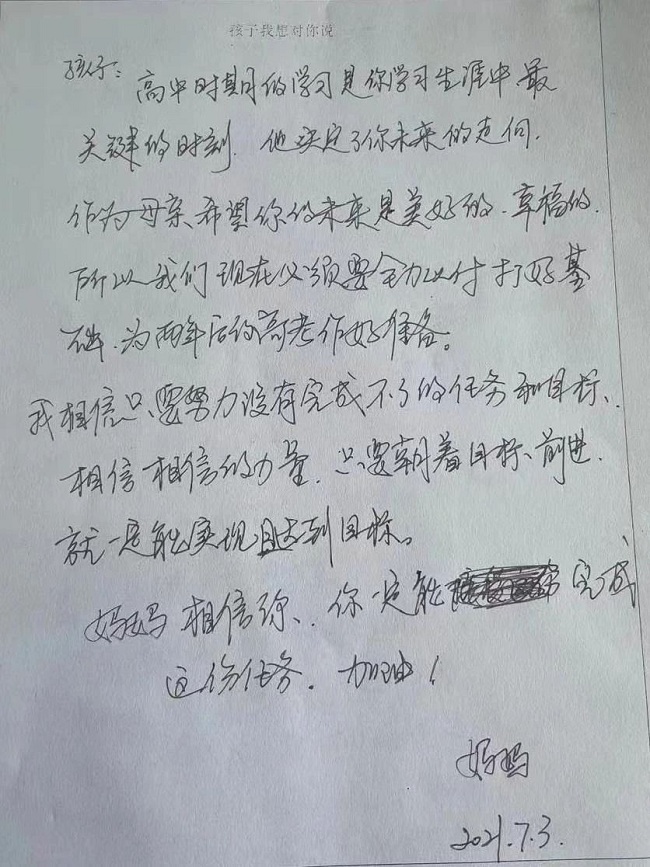 孩子我想对你说
孩子:
高中时期的学习是你学习生涯中最
关键的时刻.他决定了你未来的走向.
作为母亲、希望你的未来是美好的.幸福的.
所以我们现在必须要全力以付打好基
础.为两年后的高考作好准备。
我相信只要努力没有完成不了的任务和目标、
相信相信的力量.只要朝着目标、前进.
就一定能实现且达到目标。
妈妈相信你、.你一定能完成
这份任务.加油!
妈妈
2021.7.3.